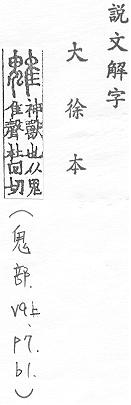 説文解字
大徐本
魋 神獸也从鬼
隹聲杜回切
(鬼部.v9上、p7.b1.)